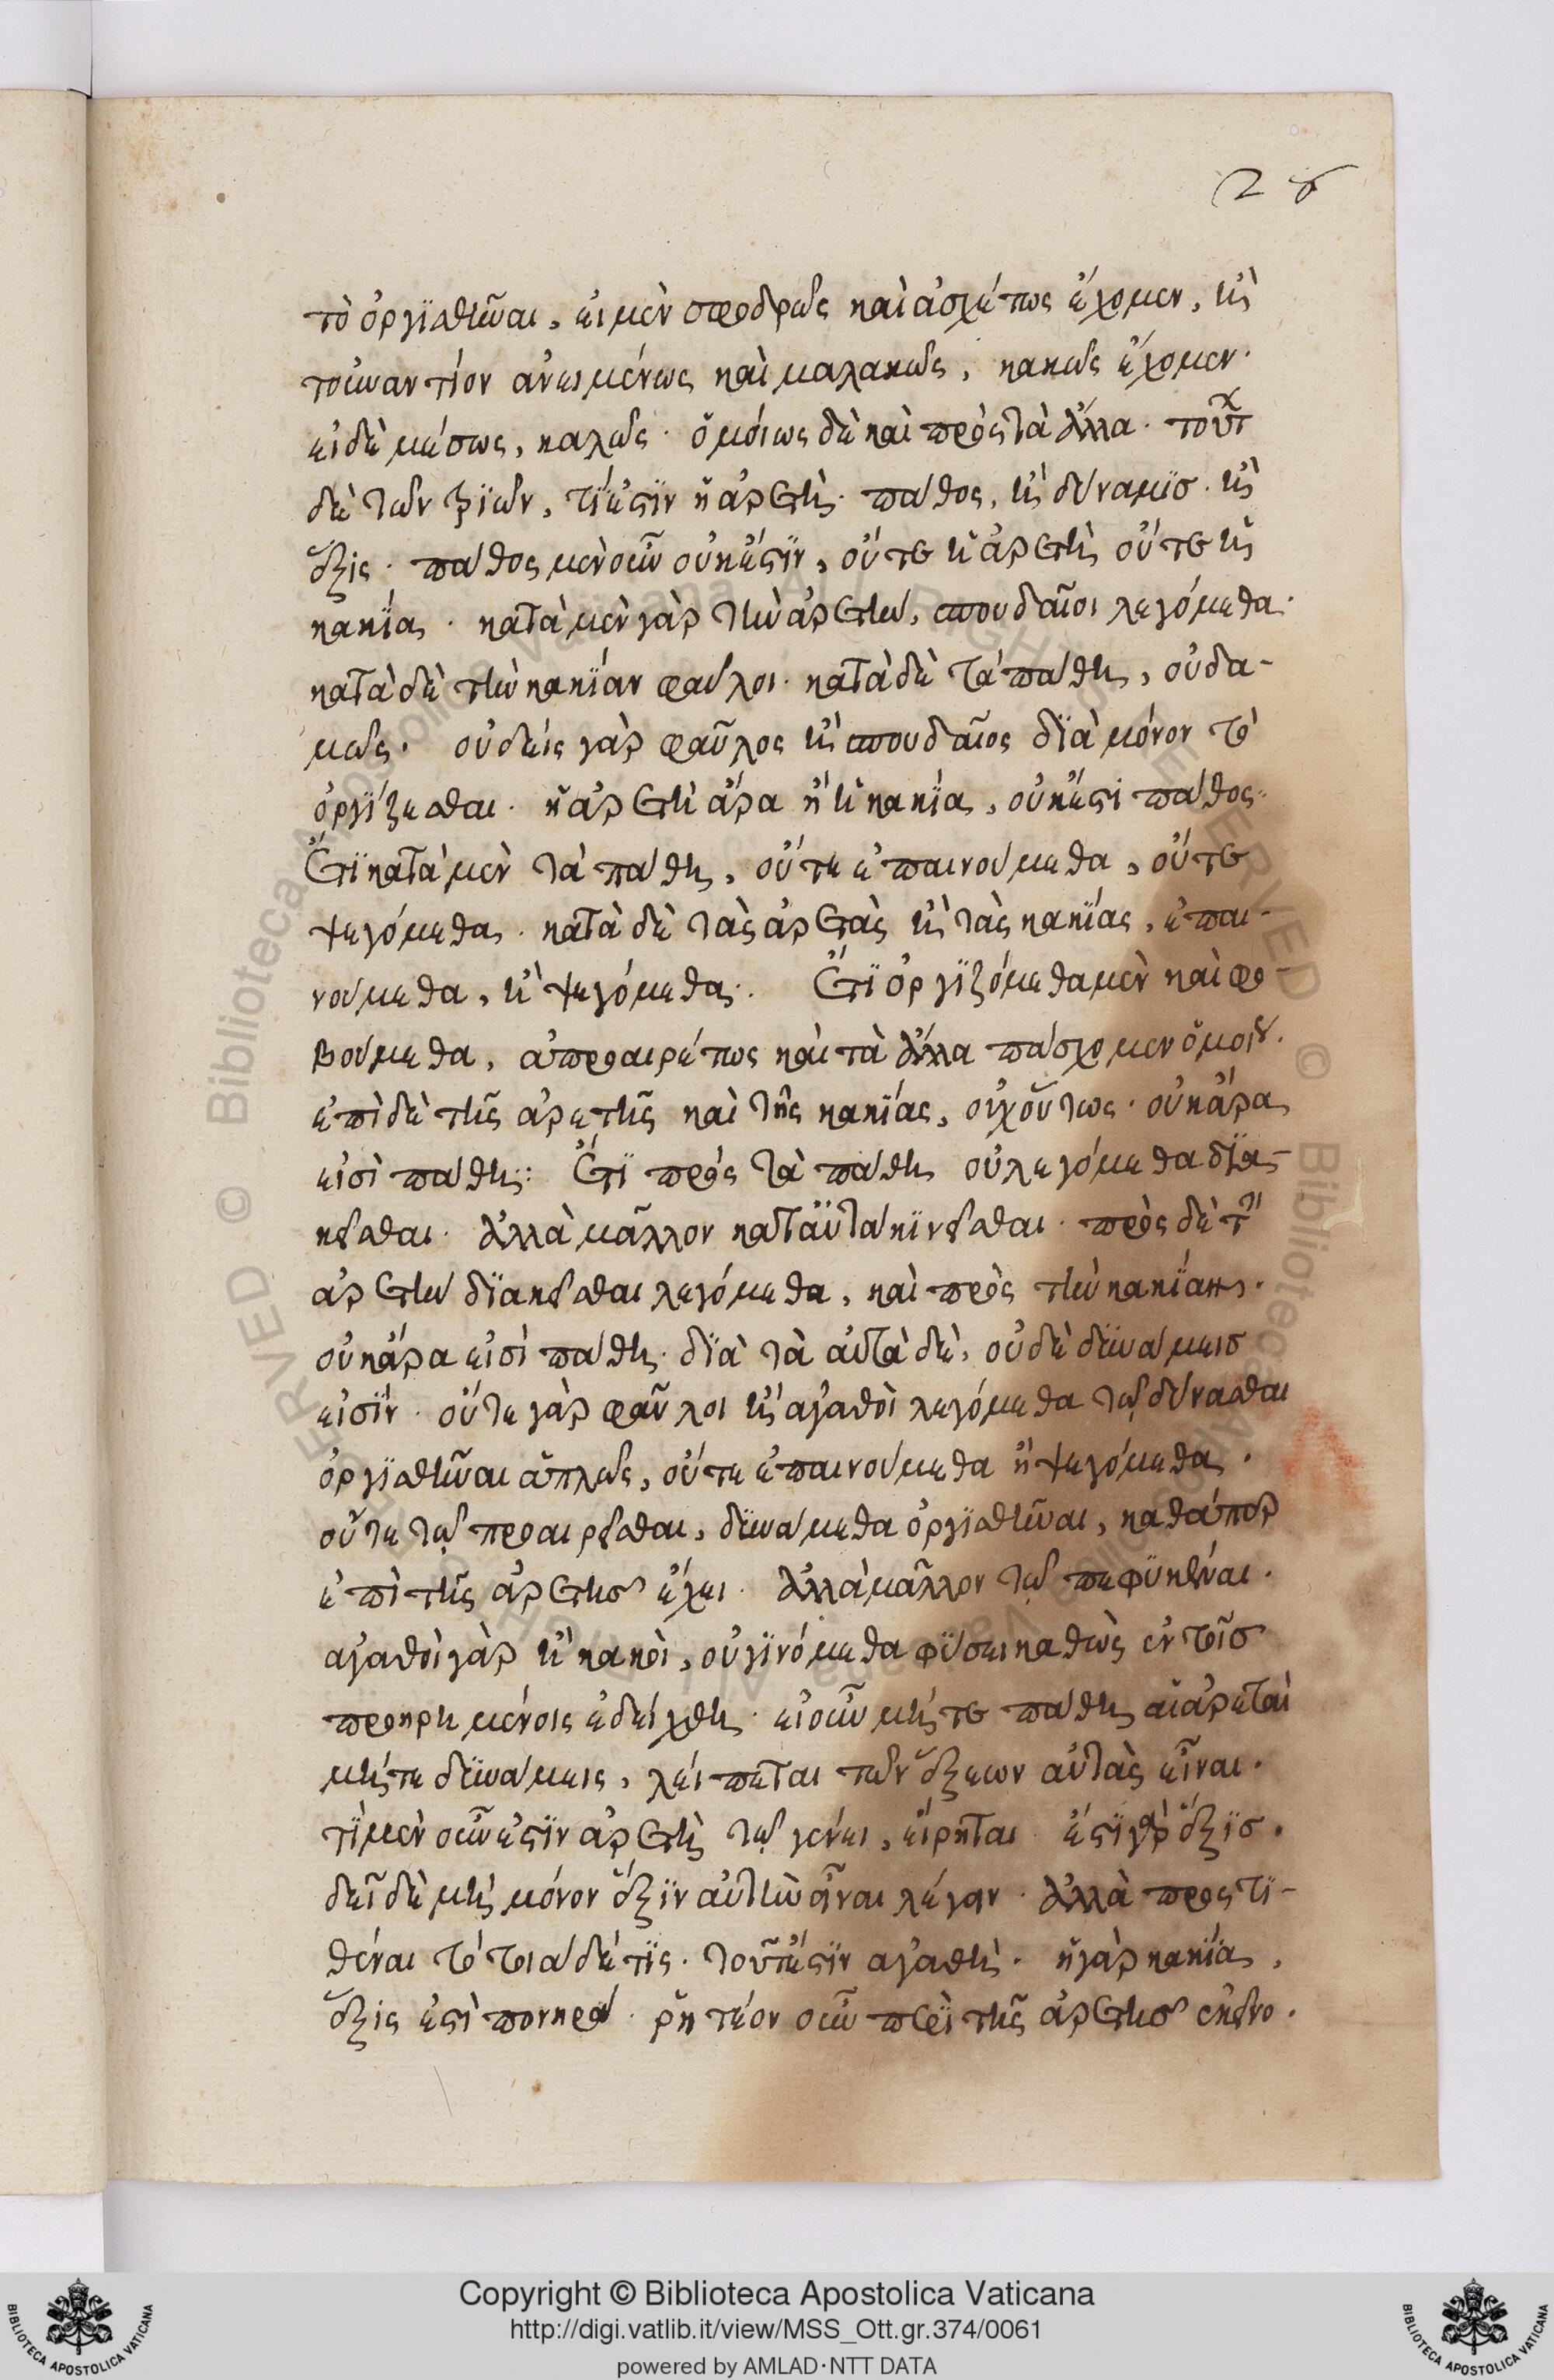 26
τὸ ὀργϊσθῆναι, εἰ μὲν σφοδρῶς καὶ ἀσχέτως ἔχομεν, ἢ
τοὐναντίον ἀνειμένως καὶ μαλακῶς, κακῶς ἔχομεν·
εἰ δὲ μέσως, καλῶς· ὁμοίως δὲ καὶ πρὸς τὰ ἄλλα· τούτ
δὲ τῶν τριῶν, τί ἐστϊν ἡ ἀρετὴ· πάθος, ἢ δύναμϊσ· ἢ
ἕξις· πάθος μὲν οὖν οὐκ ἔστϊν, οὔτε ἡ ἀρετὴ οὔτε ἡ
κακία· κατὰ μὲν γὰρ τὴν ἀρετὴν, σπουδαῖοι λεγόμεθα·
κατὰ δὲ τὴν κακΐαν φαύλοι· κατὰ δὲ τὰ πάθη, οὐδα-
μῶς· οὐδεὶς γὰρ φαῦλος ἢ σπουδαῖος δϊὰ μόνον τὸ
ὀργΐζεσθαι· ἡ ἀρετὴ ἄρα ἢ ἡ κακΐα, οὐκ ἔστι πάθος·
Ἔτϊ κατὰ μὲν τὰ πάθη, οὔτε ἐπαινούμεθα, οὔτε
ψεγόμεθα· κατὰ δὲ τὰς ἀρετὰς ἢ τὰς κακΐας, ἐπαι-
νούμεθα, ἢ ψεγόμεθα· Ἔτϊ ὀργϊζόμεθα μὲν καὶ φο-
βούμεθα, ἀπροαιρέτως καὶ τὰ ἄλλα πάσχομεν ὁμοί·
ἐπὶ δὲ τῆς ἀρετῆς καὶ τῆς κακΐας, οὐχ οὕτως· οὐκ ἄρα
εἰσὶ πάθη: Ἔτϊ πρὸς τὰ πάθη οὐ λεγόμεθα δϊα-
κεῖσθαι· ἀλλὰ μᾶλλον κατ' αὐτὰ κϊνεῖσθαι· πρὸς δὲ τὴν
ἀρετὴν δϊακεῖσθαι λεγόμεθα, καὶ πρὸς τὴν κακίαν·
οὐκ ἄρα εἰσὶ πάθη· δϊὰ τὰ αὐτὰ δὲ, οὐδὲ δϋνάμεισ
εἰσΐν· οὔτε γὰρ φαῦλοι ἢ ἀγαθοὶ λεγόμεθα τῷ δύνασθαι
ὀργϊσθῆναι ἁπλῶς, οὔτε ἐπαινούμεθα ἢ ψεγόμεθα·
οὔτε τῷ προαιρεῖσθαι, δϋνάμεθα ὀργϊσθῆναι, καθάπερ
ἐπὶ τῆς ἀρετῆσ ἔχει· ἀλλὰ μᾶλλον τῷ πεφϋκέναι·
ἀγαθοὶ γὰρ ἢ κακοὶ, οὐ γϊνόμεθα φΰσει καθὼς ἐν τοῖσ
προηρημένοις ἐδείχθη· εἰ οὖν μήτε πάθη αἱ ἀρεταὶ
μήτε δϋνάμεις, λείπεται τῶν ἕξεων αὐτὰς εἶναι·
τΐ μὲν οὖν ἐστϊν ἀρετὴ τῷ γένει, εἴρηται· ἔστϊ γὰρ ἕξϊσ·
δεῖ δὲ μὴ μόνον ἕξϊν αὐτὴν εἶναι λέγειν· ἀλλὰ προστϊ-
θέναι τὸ τοιάδέ τϊς· τοῦτ' ἔστϊν ἀγαθὴ· ἡ γὰρ κακΐα,
ἕξις ἐστὶ πονηρά· ῥητέον οὖν περὶ τῆς ἀρετῆσ ἐκεῖνο·
Copyright © Biblioteca Apostolica Vaticana
http://digi.vatlib.it/view/MSS_Ott.gr.374/0061
powered by AMLAD·NTT DATA